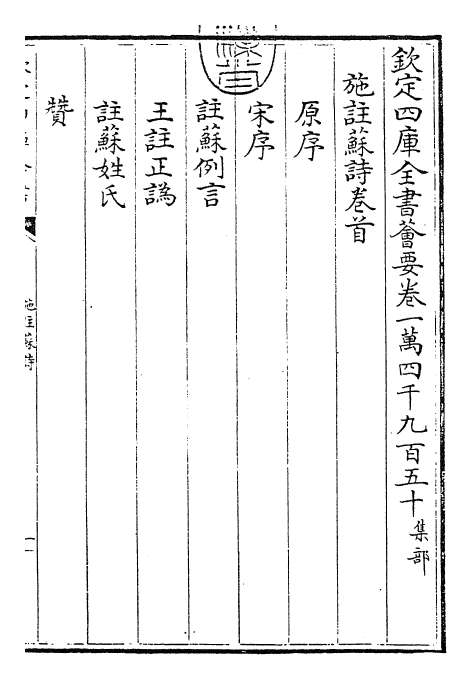 欽定四庫全書薈要卷一萬四千九百五十集部
施註蘇詩卷首
原序
宋序
註蘇例言
王註正譌
註蘇姓氏
贊
施註蘇詩
一